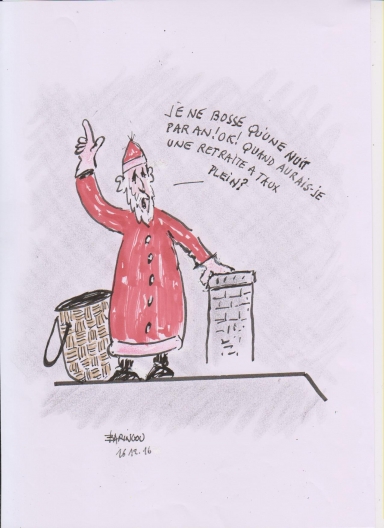 JE NE BOSSE QU'UNE NUIT
PAR AN! OK! QUAND AURAIS-JE
UNE RETRAITE A TAUX
PLEIN?
BARINCOU
16.12.16